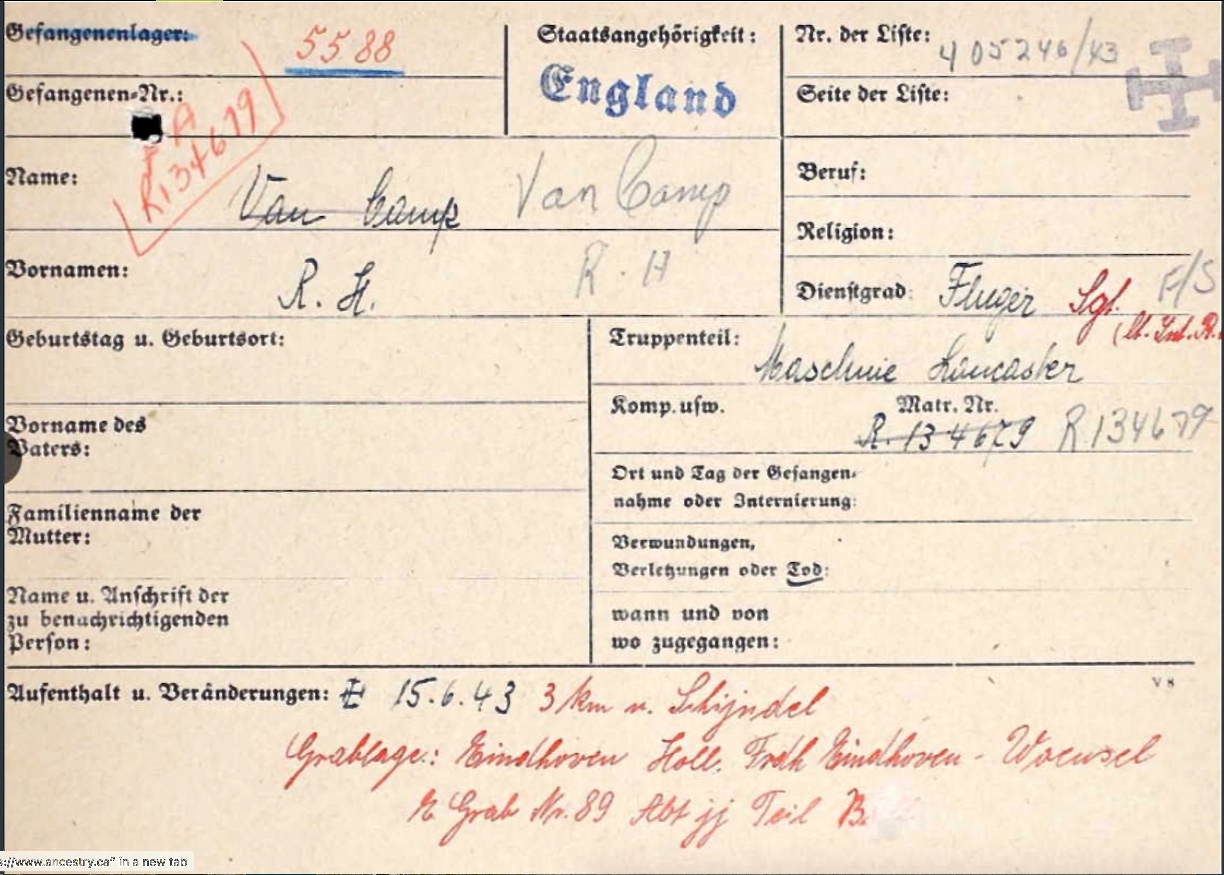 Gefangenenlager: 5588
Staatsangehörigkeit:
England
Nr. der Liste: 405246/43
Gefangenen-Nr.:
Seite der Liste:
A
R134679
Name: Van Camp Van Camp
Beruf:
Religion:
Vornamen: R. H. R. H
Dienstgrad: Flieger Sgt. F/S
Geburtstag u. Geburtsort:
Truppenteil:
Maschine Lancaster
Komp. usw. Matr. Nr.
R. 134679 R134679
Vorname des
Vaters:
Ort und Tag der Gefangen-
nahme oder Internierung:
Familienname der
Mutter:
Verwundungen,
Verletzungen oder Tod:
Name u. Anschrift der
zu benachrichtigenden
Person:
wann und von
wo zugegangen:
Aufenthalt u. Veränderungen: 15.6.43 3 km n. Schijndel
V 8
Grablage: Eindhoven Holl. Frdh Eindhoven - Woensel
E Grab Nr. 89 Abt jj Teil B.
s://www.ancestry.ca" in a new tab